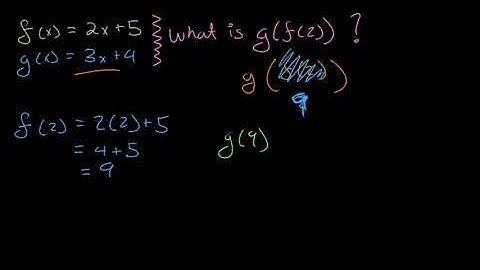 f(x) = 2x+5
g(x) = 3x+4
What is g(f(2)) ?
g ( )
9
f(2) = 2(2)+5
= 4+5
= 9
g(9)